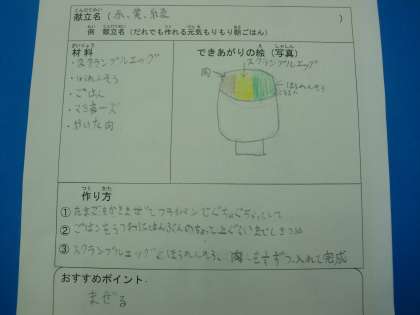 献立名（赤、黄、緑）
例 献立名（だれでも作れる元気もりもり朝ごはん）
材料
・スクランブルエッグ
・ほうれんそう
・ごはん
・マヨネーズ
・やいた肉
できあがりの絵（写真）
スクランブルエッグ
肉
ほうれんそう
作り方
①たまごをかきまぜてフライパンでぐちゃぐちゃにして
②ごはんをうつわにはんぶんのちょっと上ぐらいまでしきつめ
③スクランブルエッグとほうれんそう、肉を 入れて完成
おすすめポイント
まぜる